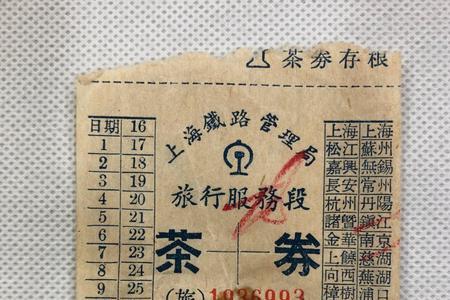 茶券存根
上海鐵路管理局
旅行服務段
茶券
(旅)1036993
日期 16
1 17
2 18
3 19
4 20
5 21
6 22
7 23
8 24
9 25
上海 上海
松江 蘇州
嘉興 無錫
長安 常州
杭州 丹陽
諸暨 鎮江
金華 南京
上饒 慈湖
向西 蕪湖
樟樹